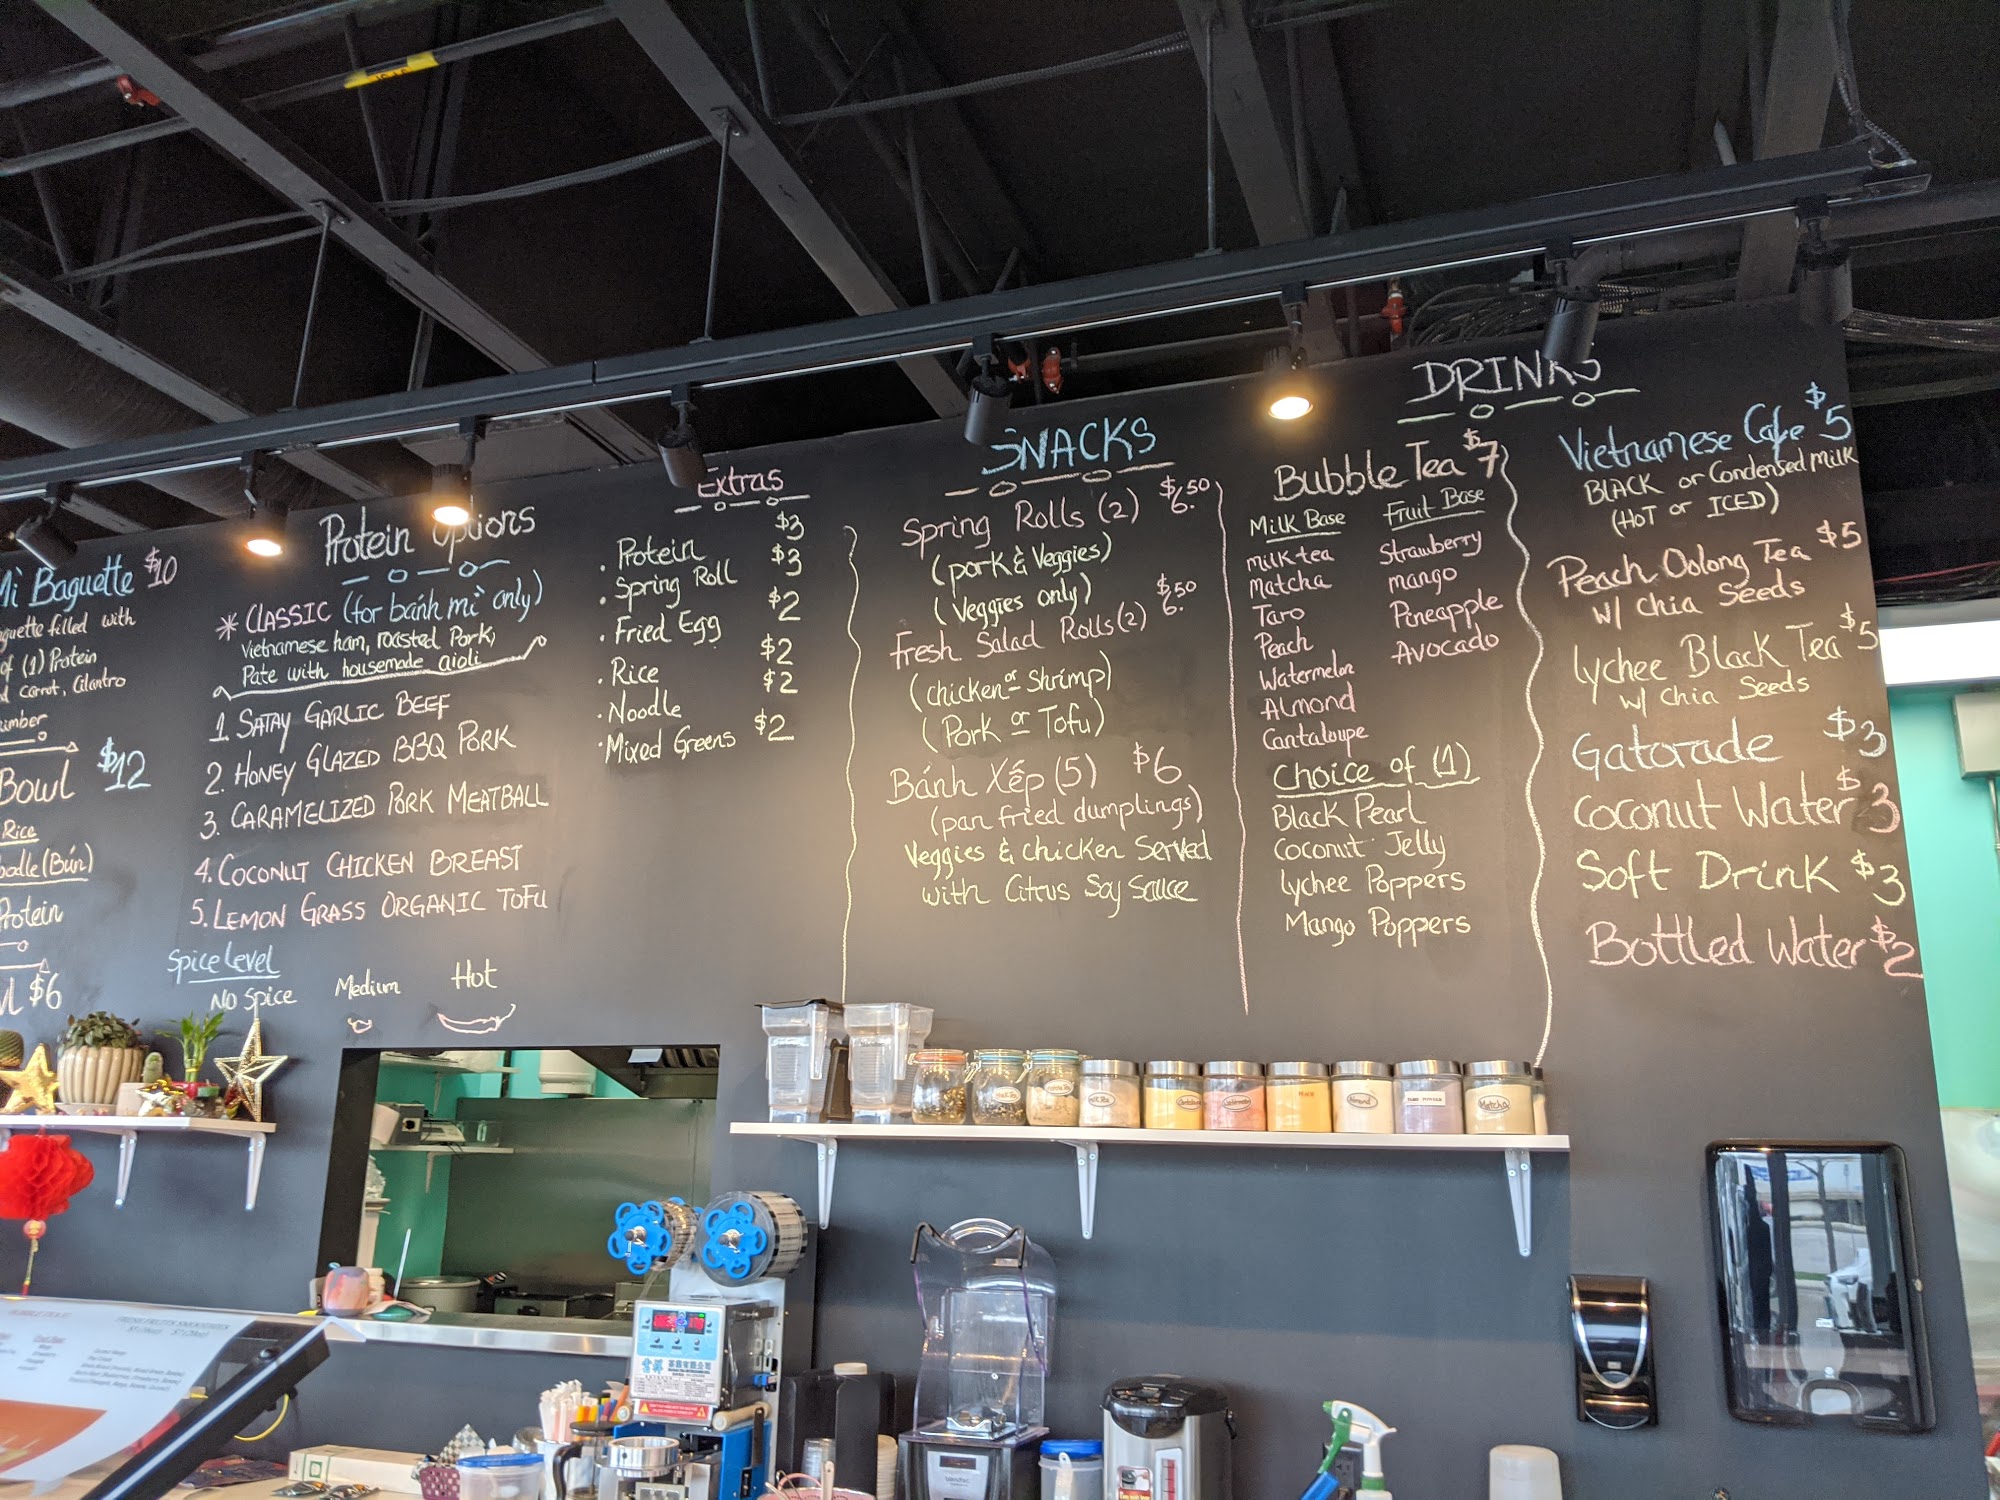 Mì Baguette $10
guette filled with
of (1) Protein
d Carrot, Cilantro
umber
Bowl $12
Rice
oodle (Bún)
Protein
wl $6
Protein Options
* CLASSIC (for bánh mì only)
Vietnamese ham, roasted Pork,
Pate with housemade aioli
1. SATAY GARLIC BEEF
2. HONEY GLAZED BBQ PORK
3. CARAMELIZED PORK MEATBALL
4. COCONUT CHICKEN BREAST
5. LEMON GRASS ORGANIC TOFU
Spice Level
No Spice Medium Hot
Extras
• Protein $3
• Spring Roll $3
• Fried Egg $2
• Rice $2
• Noodle $2
• Mixed Greens $2
SNACKS
Spring Rolls (2) $6.50
(pork & Veggies)
(Veggies only)
Fresh Salad Rolls (2) $6.50
(chicken or Shrimp)
(Pork or Tofu)
Bánh Xếp (5) $6
(pan fried dumplings)
Veggies & chicken Served
with Citrus Soy Sauce
DRINKS
Bubble Tea $7
Milk Base
milk tea
Matcha
Taro
Peach
Watermelon
Almond
Cantaloupe
Fruit Base
Strawberry
mango
Pineapple
Avocado
Choice of (1)
Black Pearl
Coconut Jelly
Lychee Poppers
Mango Poppers
Vietnamese Cafe $5
BLACK or Condensed Milk
(HOT or ICED)
Peach Oolong Tea $5
w/ Chia Seeds
Lychee Black Tea $5
w/ Chia Seeds
Gatorade $3
Coconut Water $3
Soft Drink $3
Bottled Water $2
PEACH
Almond
Matcha